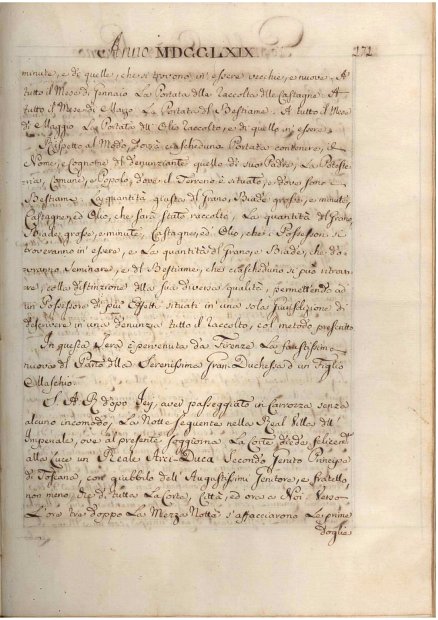 Anno MDCCLXIX. 172
minute, e di quelle, che si trovono in' essere vecchie, e nuove. A'
tutto il Mese di Gennaio La Portata delle Raccolte delle Castagne. A
tutto il Mese di Marzo La Portata del Bestiame. A tutto il Mese
di Maggio La Portata dell' Olio Raccolto, e di quello in' essere.
Rispetto al Modo, dovrà ciascheduna Portata contenere, il
Nome, e Cognome del denunziante quello di suo Padre, La Potesteria,
Comune, e Popolo, dove il Terreno è situato, e dove sono
Bestiame, La quantità giusta del Grano, Biade grosse, e minute,
Castagne, ed Olio, che sarà stato raccolto, La quantità del Grano,
Biade, grosse, e minute, Castagne, ed Olio, che i Possessori si
troveranno in' essere, e La quantità del Grano, e Biade, che dovranno
Seminare, e del Bestiame, che ciascheduno si può ritrovare,
colla distinzione della sua diversa qualità, permettendo ad
un Possessore di più Effetti situati in' una sola Giurisdizione di
descrivere in una denunzia tutto il Raccolto, col metodo prescritto
In questa Sera è pervenuta da Firenze La faustissima
nuova del Parto della Serenissima Gran-Duchessa d' un Figlio
Maschio.
S. A. R. dopo Jeri, aver passeggiato in Carrozza senza
alcuno incomodo, La Notte seguente nella Real Villa dell'
Imperiale, ove al presente soggiorna La Corte diede felicem.te
alla Luce un Reale Arci-Duca Secondo Genito Principe
di Toscana, con giubbilo dell' Augustissimi Genitore, e fratello,
non meno, che di tutta La Corte, Città, ed ora a Noi. Verso
L'ore tre doppo La Mezza Notte s'affacciarono Le prime
doglie